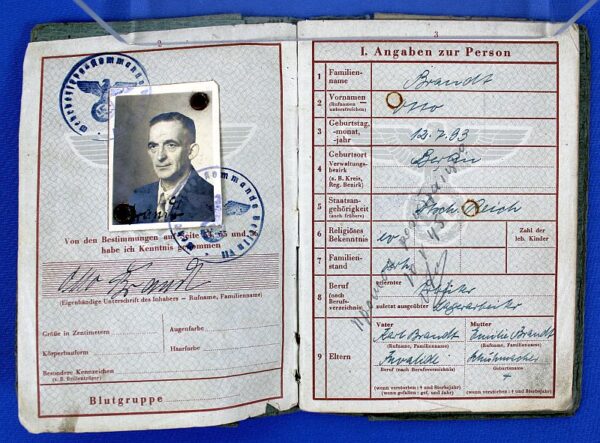 2
Von den Bestimmungen auf Seite und
habe ich Kenntnis genommen
Otto Brandt
(Eigenhändige Unterschrift des Inhabers — Rufname, Familienname)
Größe in Zentimetern
Augenfarbe
Körperbauform
Haarfarbe
Besondere Kennzeichen
(z. B. Brillenträger)
Blutgruppe
3
I. Angaben zur Person
1 Familien-
name
Brandt
2 Vornamen
(Rufnamen
unterstreichen)
Otto
3 Geburtstag,
-monat,
-jahr
12.7.93
4 Geburtsort
Verwaltungs-
bezirk
(z. B. Kreis,
Reg. Bezirk)
Berlin
5 Staatsan-
gehörigkeit
(auch frühere)
Dtsch. Reich
6 Religiöses
Bekenntnis
ev
Zahl der
leb. Kinder
7 Familien-
stand
verh.
8 Beruf
(nach
Berufs-
verzeichnis)
gelernter
zuletzt ausgeübter
Lagerarbeiter
9 Eltern
Vater
Karl Brandt
(Rufname, Familienname)
Invalide
Beruf (nach Berufsverzeichnis)
(wenn verstorben : † und Sterbejahr)
(wenn gefallen : gef. und Jahr)
Mutter
Emilie Brandt
(Rufname, Familienname)
Schuhmacher
Geburtsname
†
(wenn verstorben : † und Sterbejahr)